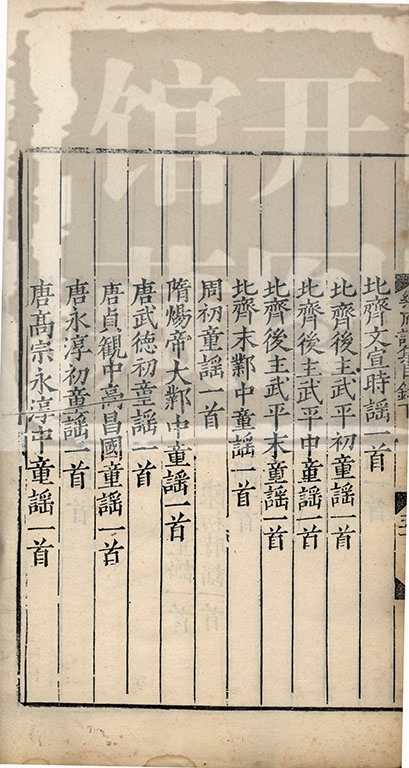 北齊文宣時謠一首
北齊後主武平初童謠一首
北齊後主武平中童謠一首
北齊後主武平末童謠一首
北齊末鄴中童謠一首
周初童謠一首
隋煬帝大鄴中童謠一首
唐武德初童謠一首
唐貞観中髙昌國童謠一首
唐永淳初童謠一首
唐髙宗永淳中童謠一首
开
馆